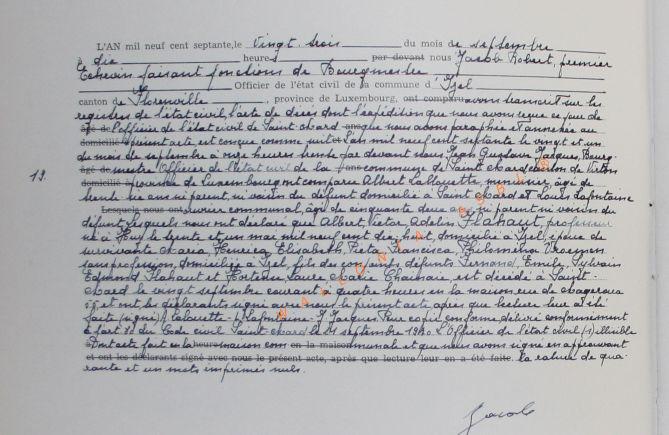 L'AN mil neuf cent septante, le vingt-trois du mois de septembre
à dix heures par devant nous Jacob Robert, premier
Echevin faisant fonctions de Bourgmestre
Officier de l'état civil de la commune d'Izel
canton de Florenville, province de Luxembourg, ont comparu avons transcrit sur les
registres de l'état civil, l'acte de décès dont l'expédition que nous avons reçue ce jour de
âgé de l'officier de l'état civil de Saint-Mard que nous avons paraphée et annexée au
domicilié à présent acte est conçue comme suit: L'an mil neuf cent septante le vingt et un
du mois de septembre à onze heures trente par devant nous Jean Gustave Jacques, Bourg-
âgé de mestre Officier de l'état civil de la commune de Saint-Mard canton de Virton
domicilié à province de Luxembourg ont comparu Albert Lalouette, menuisier, âgé de
trente ans ni parent, ni voisin du défunt domicilié à Saint-Mard et Louis Lafontaine
Lesquels nous ont ouvrier communal, âgé de cinquante deux ans, ni parent ni voisin du
défunt, lesquels nous ont déclaré que Albert, Victor, Adelin Flahaut, professeur
né à Huy le trente et un mai mil neuf cent dix huit, domicilié à Izel, époux de
survivante Maria, Henrica, Elisabeth, Pieta, Francisca, Philomena Vroemen
sans profession domiciliée à Izel, fils des conjoints défunts Fernand, Emile, Sylvain
Edmond Flahaut et Hortense Laure Marie Chainaie est décédé à Saint-
Mard le vingt septembre courant à quatre heures en la maison rue de Mageroux
55 et ont les déclarants signé avec nous le présent acte après que lecture leur a été
faite (signé) A Lalouette - L Lafontaine - J Jacques. Pour copie conforme délivré conformément
à l'art 80 du Code civil Saint-Mard le 21 septembre 1970. L'Officier de l'état civil (s) illisible
à Dont acte fait en la heure maison com en la maison munale et que nous avons signé en approuvant
et ont les déclarants signé avec nous le présent acte, après que lecture leur en a été faite. la rature de qua-
rante et un mots imprimés nuls.
19.
Jacob